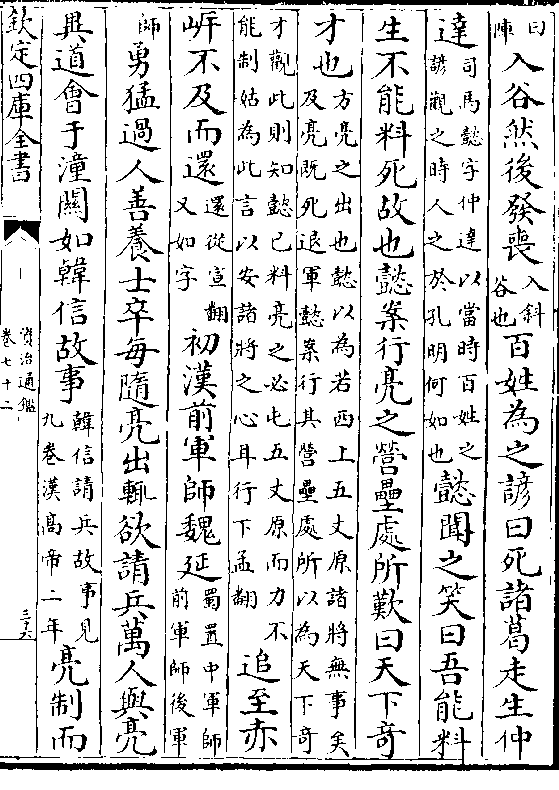 曰陣入谷然後發喪入斜谷也百姓為之諺曰死諸葛走生仲
達司馬懿字仲達以當時百姓之諺觀之時人之於孔明何如也懿聞之笑曰吾能料
生不能料死故也懿案行亮之營壘處所歎曰天下奇
才也方亮之出也懿以為若西上五丈原諸將無事矣及亮既死退軍懿案行其營壘處所以為天下奇
才觀此則知懿已料亮之必屯五丈原而力不能制姑為此言以安諸將之心耳行下孟翻追至赤
岸不及而還還從宣翻又如字初漢前軍師魏延蜀置中軍師前軍師後軍
師勇猛過人善養士卒每隨亮出輒欲請兵萬人與亮
異道會于潼關如韓信故事韓信請兵故事見九卷漢高帝二年亮制而
欽定四庫全書
資治通鑑
卷七十二
三十六